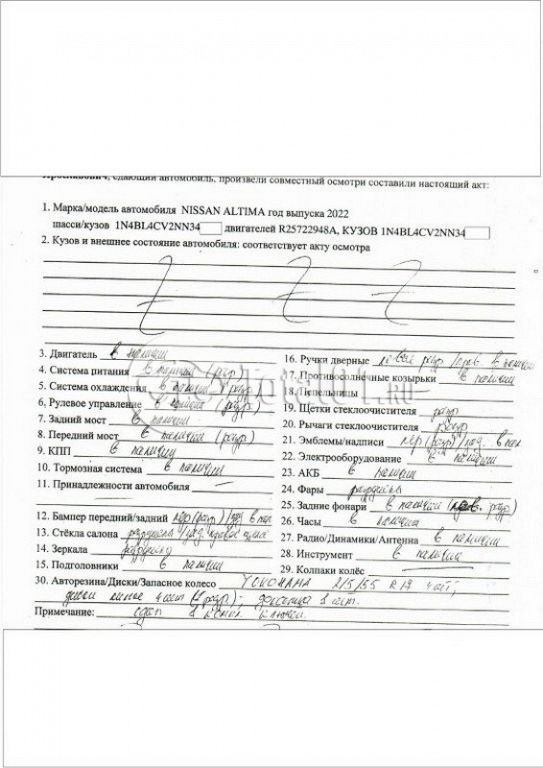 сдающий автомобиль, произвели совместный осмотри составили настоящий акт:
1. Марка/модель автомобиля NISSAN ALTIMA год выпуска 2022
шасси/кузов 1N4BL4CV2NN34 двигателей R25722948A, КУЗОВ 1N4BL4CV2NN34
2. Кузов и внешнее состояние автомобиля: соответствует акту осмотра
3. Двигатель в наличии
4. Система питания в наличии (разр)
5. Система охлаждения в наличии (разр)
6. Рулевое управление в наличии (разр)
7. Задний мост в наличии
8. Передний мост в наличии (разр)
9. КПП в наличии
10. Тормозная система в наличии
11. Принадлежности автомобиля —
12. Бампер передний/задний пер (разр) / зад в нал
13. Стёкла салона разбиты / зад правое целое
14. Зеркала
15. Подголовники в наличии
16. Ручки дверные левые разр / прав. в наличии
17. Противосолнечные козырьки в наличии
18. Пепельницы
19. Щетки стеклоочистителя разр
20. Рычаги стеклоочистителя разр
21. Эмблемы/надписи пер (разр) / зад. в нал
22. Электрооборудование в наличии
23. АКБ в наличии
24. Фары разбиты
25. Задние фонари в наличии (прав. разр)
26. Часы в наличии
27. Радио/Динамики/Антенна в наличии
28. Инструмент в наличии
29. Колпаки колёс —
30. Авторезина/Диски/Запасное колесо YOKOHAMA 215/55 R17 4шт,
диски литые 4 шт (2 разр); докатка 1 шт.
Примечание: сдан 1 ключ.